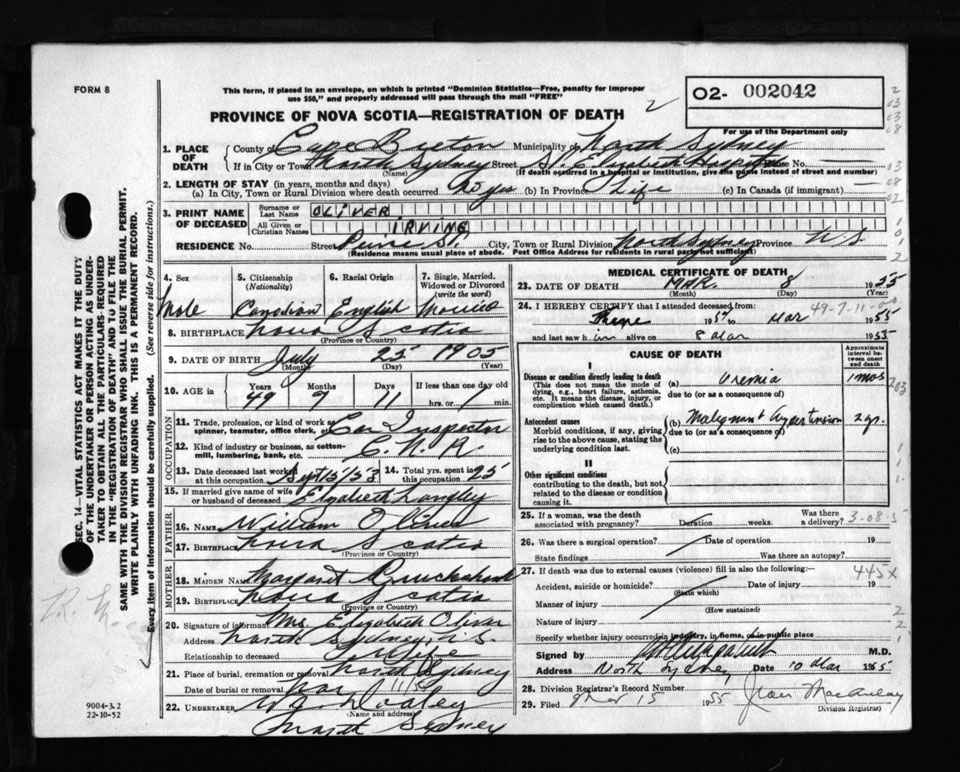 FORM 8
This form, if placed in an envelope, on which is printed "Dominion Statistics—Free, penalty for improper
use $50," and properly addressed will pass through the mail "FREE"
2
O2- 002042
For use of the Department only
PROVINCE OF NOVA SCOTIA—REGISTRATION OF DEATH
1. PLACE OF DEATH
County of Cape Breton Municipality of North Sydney
If in City or Town North Sydney Street St. Elizabeth Hospital House No. —
(Name) (If death occurred in a hospital or institution, give the name instead of street and number)
2. LENGTH OF STAY (in years, months and days)
(a) In City, Town or Rural Division where death occurred 25 yrs (b) In Province Life (c) In Canada (if immigrant) —
3. PRINT NAME OF DECEASED
Surname or Last Name OLIVER
All Given or Christian Names IRVING
RESIDENCE No. Street Peirce St. City, Town or Rural Division North Sydney Province N.S.
(Residence means usual place of abode. Post Office Address for residents in rural parts not sufficient)
4. Sex
Male
5. Citizenship
(Nationality)
Canadian
6. Racial Origin
English
7. Single, Married, Widowed or Divorced
(write the word)
Married
8. BIRTHPLACE Nova Scotia
(Province or Country)
9. DATE OF BIRTH July 25 1905
(Month) (Day) (Year)
10. AGE in
Years Months Days If less than one day old
49 7 11 hrs. or min.
OCCUPATION
11. Trade, profession, or kind of work as
spinner, teamster, office clerk, etc. Car Inspector
12. Kind of industry or business, as cotton-
mill, lumbering, bank, etc. C.N.R
13. Date deceased last worked
at this occupation Sept 15/53
14. Total yrs. spent in
this occupation 25
15. If married give name of wife
or husband of deceased Elizabeth Langley
FATHER
16. Name William Oliver
17. Birthplace Nova Scotia
(Province or Country)
MOTHER
18. Maiden Name Margaret Cruickshank
19. Birthplace Nova Scotia
(Province or Country)
20. Signature of informant Mrs. Elizabeth Oliver
Address North Sydney, N.S.
Relationship to deceased Wife
21. Place of burial, cremation or removal North Sydney
Date of burial or removal 11/55
22. UNDERTAKER
(Name and address)
North Sydney
MEDICAL CERTIFICATE OF DEATH
23. DATE OF DEATH MAR. 8 1955
(Month) (Day) (Year)
24. I HEREBY CERTIFY that I attended deceased from
49-7-11
19 to Mar 1955
and last saw him alive on 8 Mar 1955
CAUSE OF DEATH
Approximate interval between onset and death
I
Disease or condition directly leading to death
(This does not mean the mode of dying, e.g., heart failure, asthenia, etc. It means the disease, injury, or complication which caused death.)
(a) Uremia 1 mos
due to (or as a consequence of)
Antecedent causes
Morbid conditions, if any, giving rise to the above cause, stating the underlying condition last.
(b) Malignant hypertension 2 yr.
due to (or as a consequence of)
(c)
II
Other significant conditions
contributing to the death, but not related to the disease or condition causing it.
25. If a woman, was the death
associated with pregnancy? Duration weeks. Was there a delivery?
3-08
26. Was there a surgical operation? Date of operation 19
State findings Was there an autopsy?
27. If death was due to external causes (violence) fill in also the following:
445X
Accident, suicide or homicide? Date of injury 19
(State which)
Manner of injury
(How sustained)
Nature of injury
Specify whether injury occurred in industry, in home, or in public place
Signed by M.D.
Address North Sydney Date 10 Mar 1955
28. Division Registrar's Record Number
29. Filed Mar 15 1955 Jean MacAulay
Division Registrar)
SEC. 14—VITAL STATISTICS ACT MAKES IT THE DUTY
OF THE UNDERTAKER OR PERSON ACTING AS UNDER-
TAKER TO OBTAIN ALL THE PARTICULARS REQUIRED
IN THE "REGISTRATION OF DEATH" AND TO FILE THE
SAME WITH THE DIVISION REGISTRAR WHO SHALL ISSUE THE BURIAL PERMIT.
WRITE PLAINLY WITH UNFADING INK. THIS IS A PERMANENT RECORD.
Every item of information should be carefully supplied. (See reverse side for instructions.)
9004-3.2
22-10-52